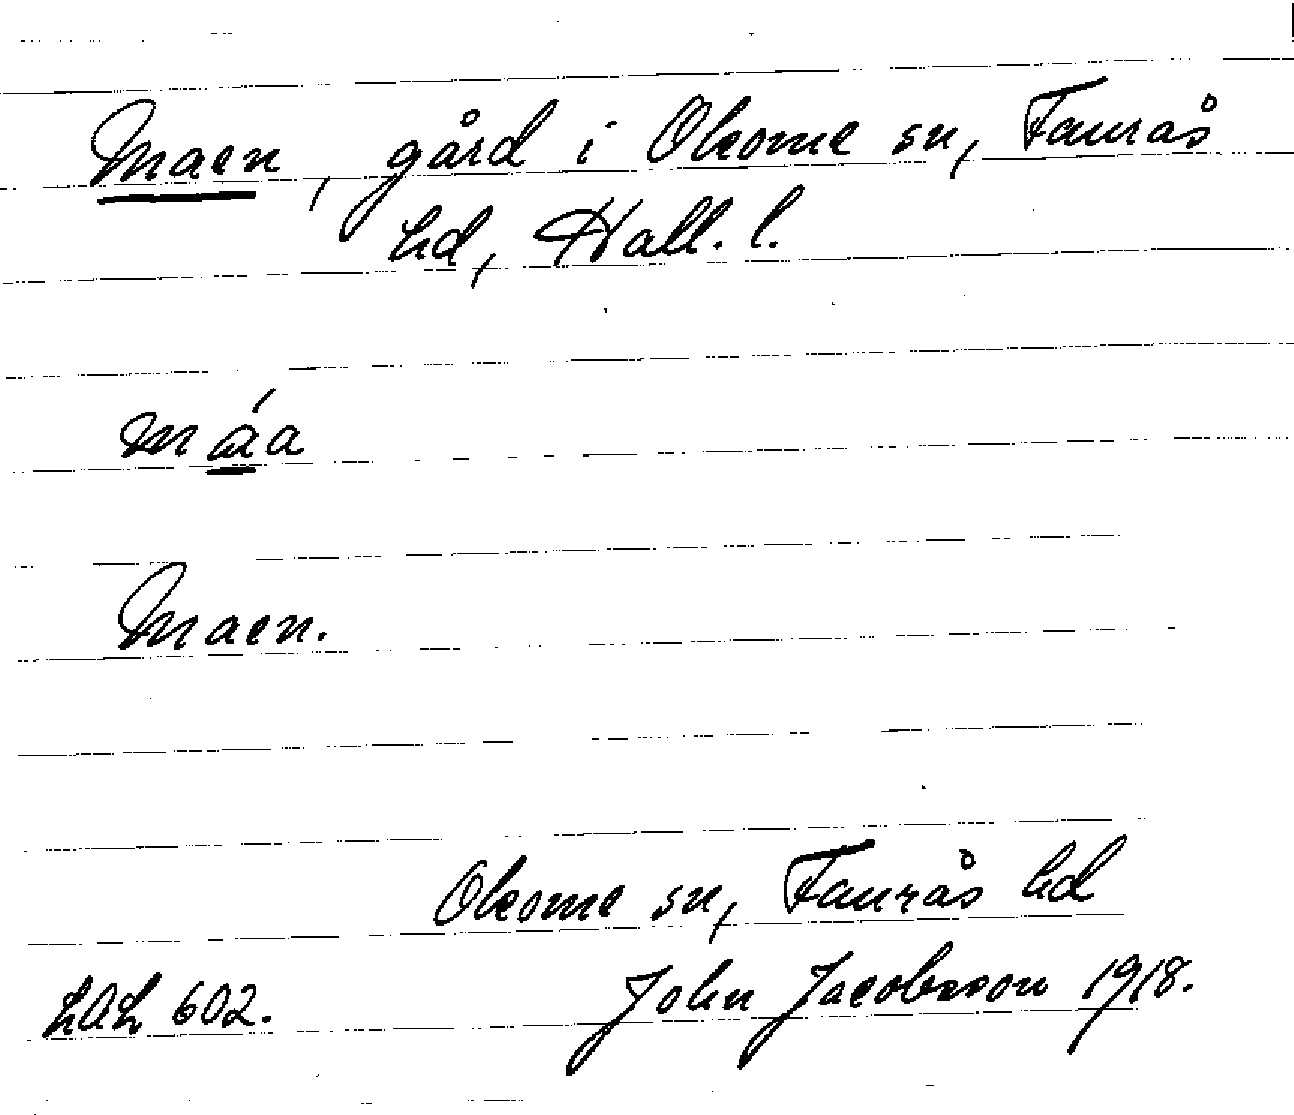 Maen, gård i Okome sn, Faurås
hd, Hall. l.
máa
Maen.
Okome sn, Faurås hd
LAL 602.
John Jacobsson 1918.